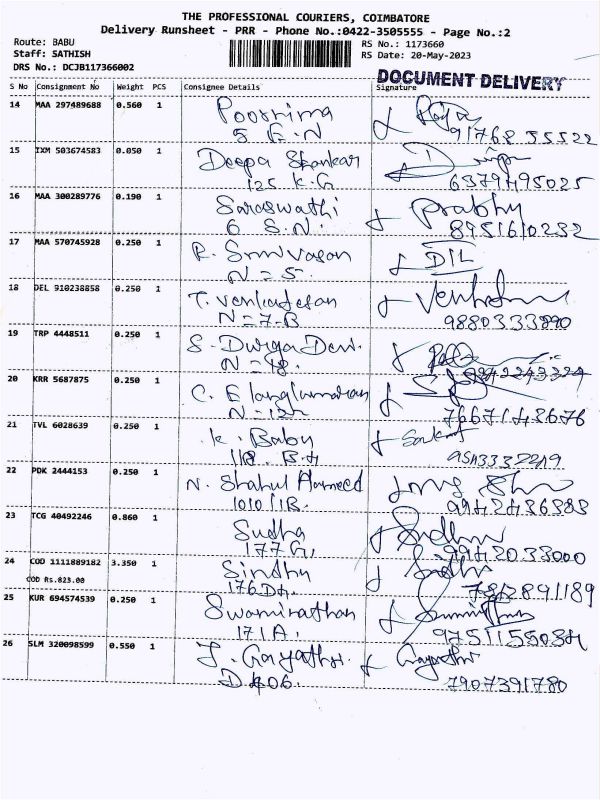 THE PROFESSIONAL COURIERS, COIMBATORE
Delivery Runsheet - PRR - Phone No.:0422-3505555 - Page No.:2
Route: BABU
Staff: SATHISH
DRS No.: DCJB117366002
RS No.: 1173660
RS Date: 20-May-2023
DOCUMENT DELIVERY
S No Consignment No Weight PCS Consignee Details Signature
14 MAA 297489688 0.560 1 Poornima
5 E.N 91768 35522
15 IXM 503674583 0.050 1 Deepa Shankar
125 K.G 6379495025
16 MAA 300289776 0.190 1 Saraswathi Prabhu
6 S.N. 8951610232
17 MAA 570745928 0.250 1 R. Srinivasan
N = 5.
18 DEL 910238858 0.250 1 T. Venkatesan
N = 7-B 9880333890
19 TRP 4448511 0.250 1 S. Durga Devi.
N = 48.
20 KRR 5687875 0.250 1 C.
7667143676
21 TVL 6028639 0.250 1 K. Babu
118. B.H
22 PDK 2444153 0.250 1 N. Shahul Hameed
1010/1B. 9942436383
23 TCG 40492246 0.860 1 Sudha Sudha
177 G, 9942033000
24 COD 1111889182 3.350 1 Sindhu Sindhu
COD Rs.823.00 176 7812891189
25 KUR 694574539 0.250 1 Swaminathan
171 A. 9751155034
26 SLM 320098599 0.550 1 J. Gayathri. Gayathri
D 406. 7907391780